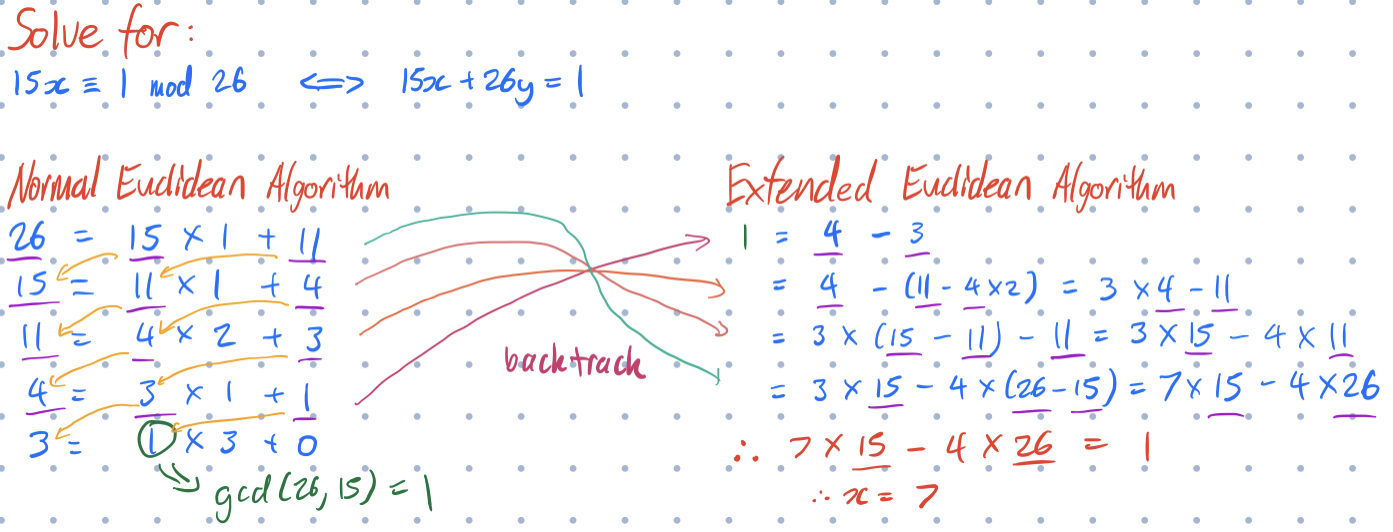 Solve for:
15x ≡ 1 mod 26 ⟺ 15x + 26y = 1
Normal Euclidean Algorithm
26 = 15 × 1 + 11
15 = 11 × 1 + 4
11 = 4 × 2 + 3
4 = 3 × 1 + 1
3 = 1 × 3 + 0
gcd(26, 15) = 1
backtrack
Extended Euclidean Algorithm
1 = 4 - 3
= 4 - (11 - 4×2) = 3 × 4 - 11
= 3 × (15 - 11) - 11 = 3 × 15 - 4 × 11
= 3 × 15 - 4 × (26 - 15) = 7 × 15 - 4 × 26
∴ 7 × 15 - 4 × 26 = 1
∴ x = 7